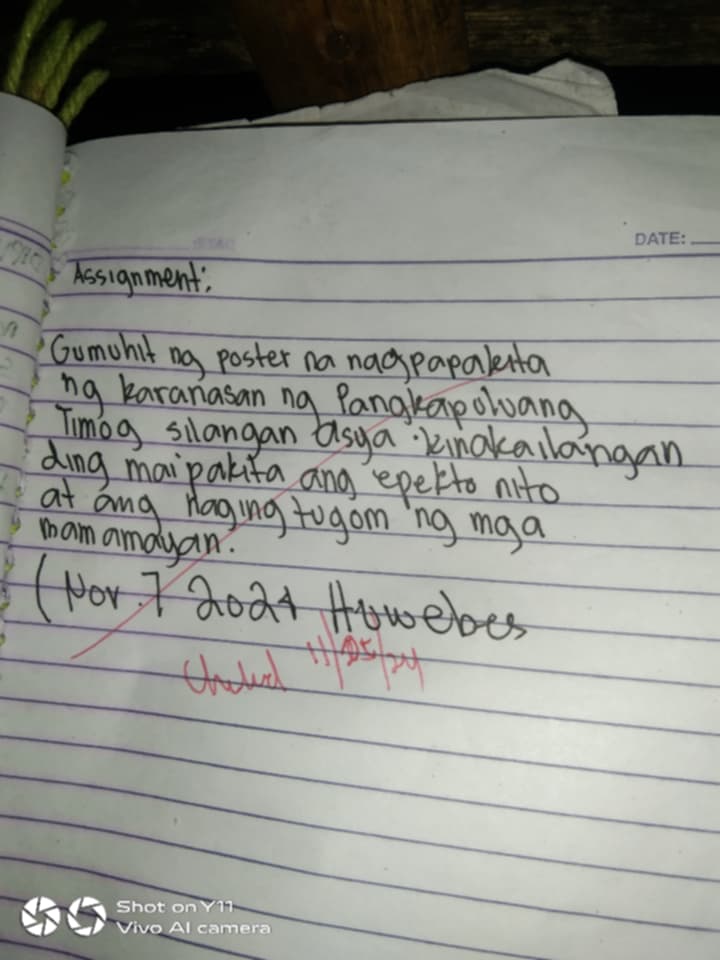 DATE:
Assignment:
Gumuhit ng poster na nagpapakita
ng karanasan ng Pangkapoluang
Timog silangan asya. kinakailangan
ding maipakita ang epekto nito
at ang naging tugom ng mga
mamamayan.
(Nov. 7 2024 Huwebes
Checked 11/25/24
Shot on Y11
Vivo AI camera